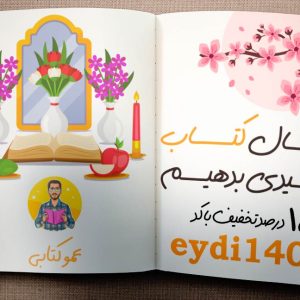 سال کتاب
عیدی بدهیم
درصد تخفیف با کد
eydi140
عمو کتابی